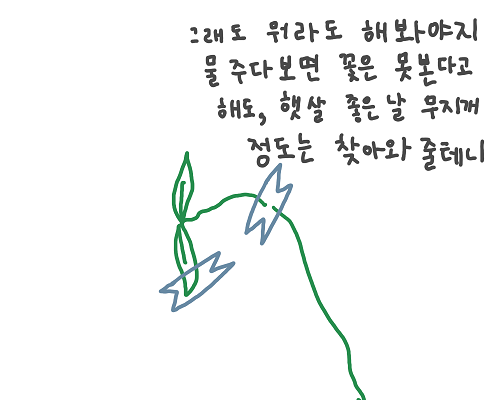 그래도 뭐라도 해봐야지
물 주다보면 꽃은 못본다고
해도, 햇살 좋은 날 무지개
정도는 찾아와 줄테니